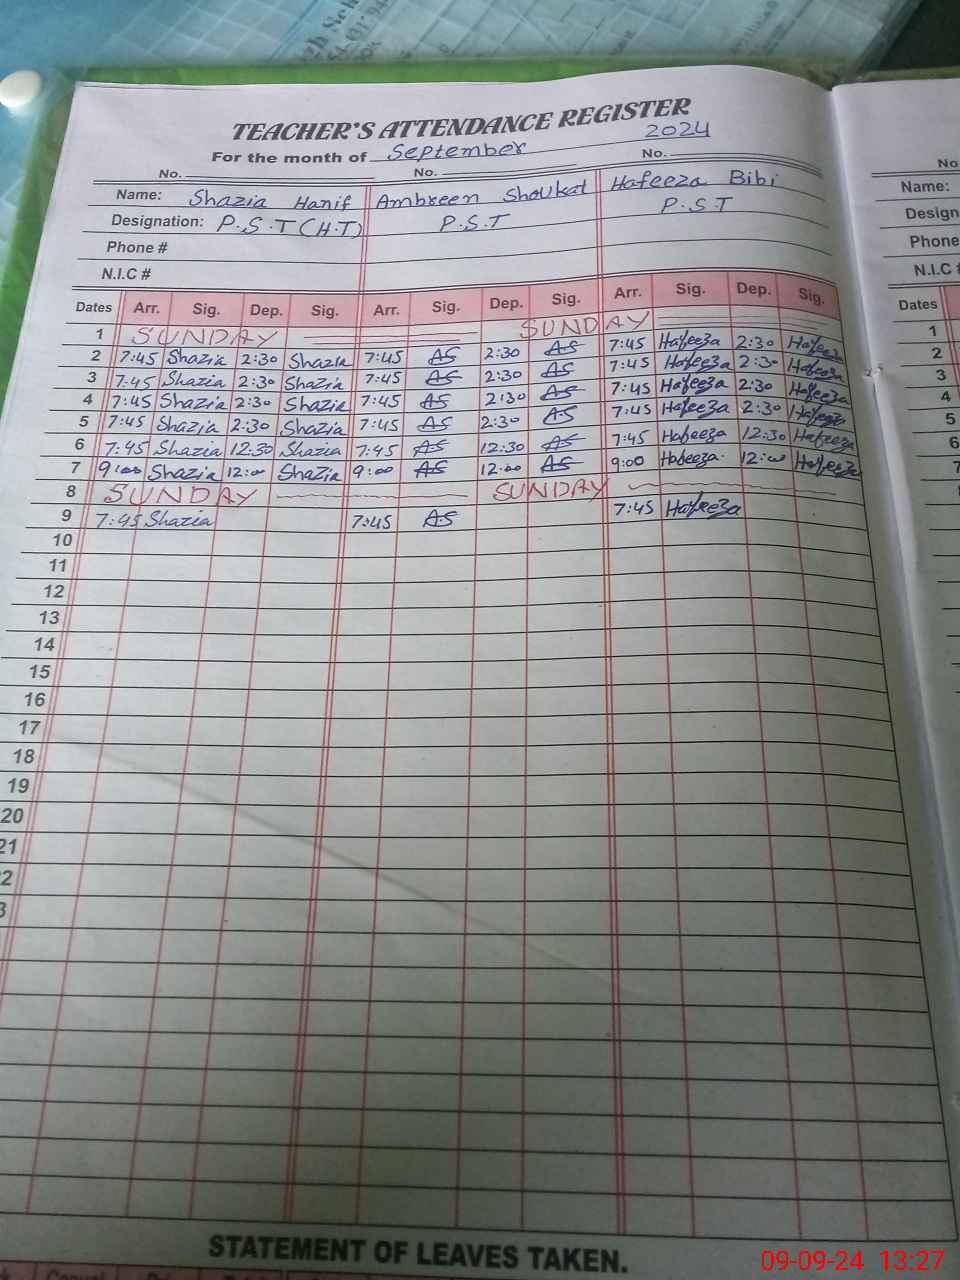 TEACHER'S ATTENDANCE REGISTER
For the month of September 2024
No. No. No.
Name: Shazia Hanif Ambreen Shoukat Hafeeza Bibi
Designation: P.S.T (H.T) P.S.T P.S.T
Phone #
N.I.C #
Dates Arr. Sig. Dep. Sig. Arr. Sig. Dep. Sig. Arr. Sig. Dep. Sig.
1 SUNDAY SUNDAY
2 7:45 Shazia 2:30 Shazia 7:45 AS 2:30 AS 7:45 Hafeeza 2:30 Hafeeza
3 7:45 Shazia 2:30 Shazia 7:45 AS 2:30 AS 7:45 Hafeeza 2:30 Hafeeza
4 7:45 Shazia 2:30 Shazia 7:45 AS 2:30 AS 7:45 Hafeeza 2:30 Hafeeza
5 7:45 Shazia 2:30 Shazia 7:45 AS 2:30 AS 7:45 Hafeeza 2:30 Hafeeza
6 7:45 Shazia 12:30 Shazia 7:45 AS 12:30 AS 7:45 Hafeeza 12:30 Hafeeza
7 9:00 Shazia 12:00 Shazia 9:00 AS 12:00 AS 9:00 Hafeeza 12:00 Hafeeza
8 SUNDAY SUNDAY
9 7:45 Shazia 7:45 A.S 7:45 Hafeeza
10
11
12
13
14
15
16
17
18
19
20
21
2
3
STATEMENT OF LEAVES TAKEN.
No
Name:
Design
Phone
N.I.C #
Dates
1
2
3
4
5
6
7
8
9
10
11
12
13
09-09-24 13:27